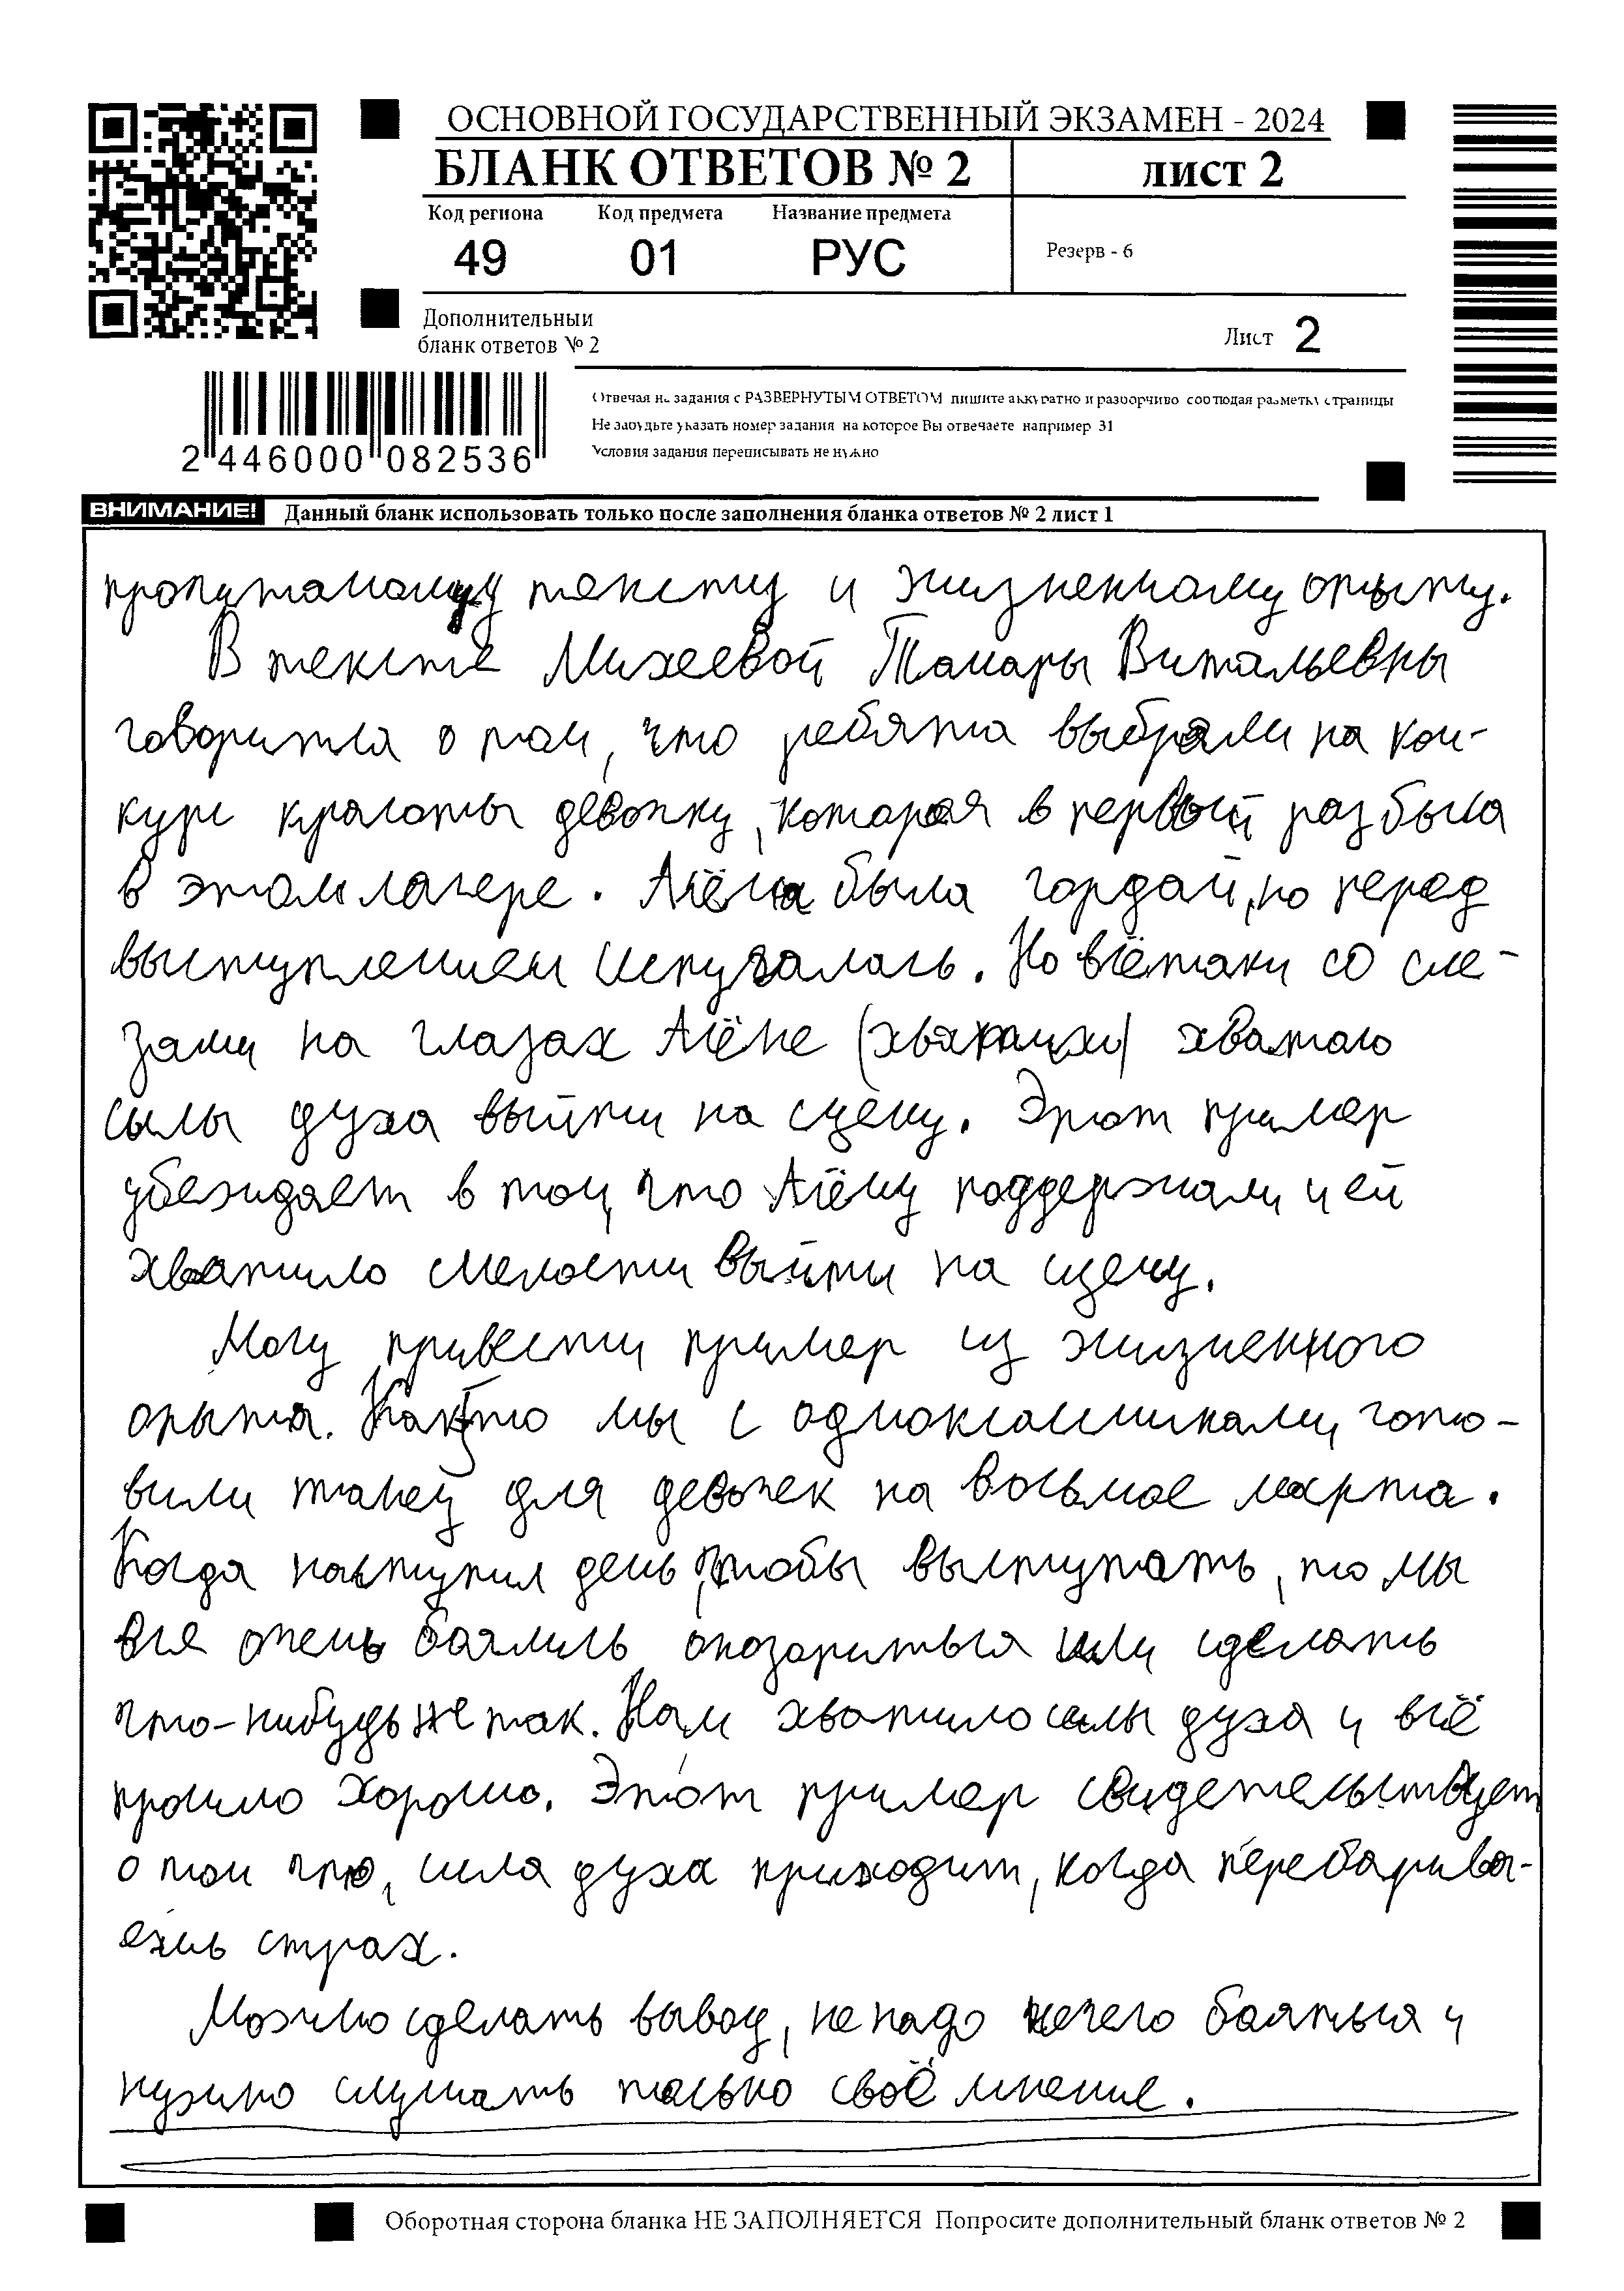 ОСНОВНОЙ ГОСУДАРСТВЕННЫЙ ЭКЗАМЕН - 2024
БЛАНК ОТВЕТОВ № 2
лист 2
Код региона
Код предмета
Название предмета
49
01
РУС
Резерв - 6
Дополнительный
бланк ответов № 2
Лист 2
Отвечая на задания с РАЗВЕРНУТЫМ ОТВЕТОМ пишите аккуратно и разборчиво соблюдая разметку страницы
Не забудьте указать номер задания на которое Вы отвечаете например 31
Условия задания переписывать не нужно
2 446000 082536
ВНИМАНИЕ! Данный бланк использовать только после заполнения бланка ответов № 2 лист 1
прочитаному тексту и жизненному опыту.
В тексте Михеевой Тамары Витальевны
говорится о том, что ребята выбрали на кон-
курс красоты девочку, которая в первый раз была
в этом лагере. Алёна была гордой, но перед
выступлением испугалась. Но всётаки со сле-
зами на глазах Алёне хватило
силы духа выйти на сцену. Этот пример
убеждает в том, что Алёну поддержали и ей
хватило смелости выйти на сцену.
Могу привести пример из жизненного
опыта. Как то мы с одноклассниками гото-
вили танец для девочек на восьмое марта.
Когда наступил день, чтобы выступать, то мы
все очень боялись опозориться или сделать
что-нибудь не так. Нам хватило силы духа и всё
прошло хорошо. Этот пример свидетельствует
о том что, сила духа приходит, когда перебарива-
ешь страх.
Можно сделать вывод, не надо нечего бояться и
нужно слушать только своё мнение.
Оборотная сторона бланка НЕ ЗАПОЛНЯЕТСЯ Попросите дополнительный бланк ответов № 2